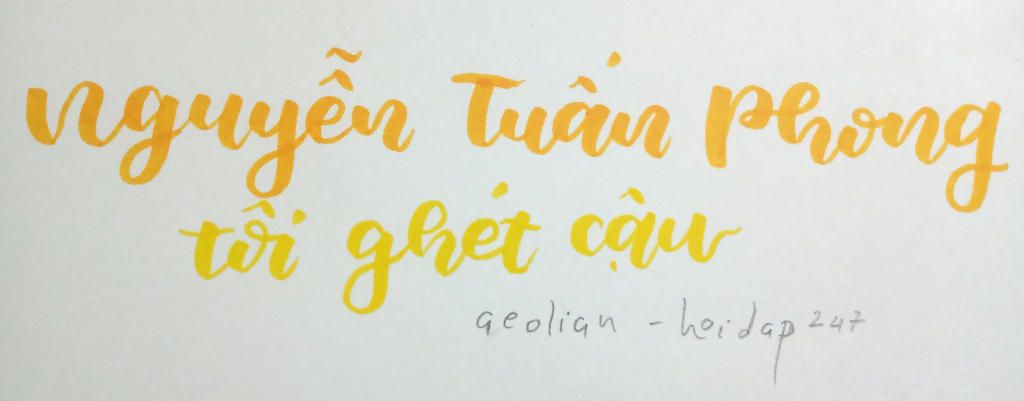 Nguyễn Tuấn Phong
tôi ghét cậu
aeolian - hoidap247